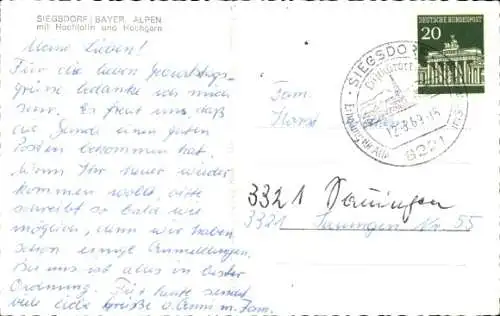 SIEGSDORF / BAYER. ALPEN
mit Hochfelln und Hochgern
Meine Lieben!
Für die lieben Geburtstags-
grüße bedanke ich mich
sehr. Es freut uns, daß
die Gerda einen guten
Posten bekommen hat.
Wenn Ihr heuer wieder
kommen wollt, bitte
schreibt so bald wie
möglich, denn wir haben
schon einige Anmeldungen.
Bei uns ist alles in bester
Ordnung. Für heute seid
viele liebe Grüße v. Anni m. Fam.
DEUTSCHE BUNDESPOST
20
SIEGSDORF
12.8.69-15
8221
Fam.
Horst
3321
3321 Nr. 55